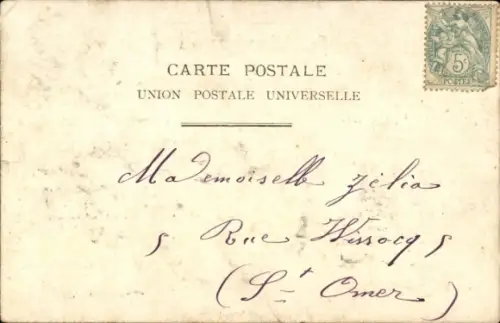 CARTE POSTALE
UNION POSTALE UNIVERSELLE
5
Mademoiselle Zélia
5 Rue Wissocq 5
(St Omer)